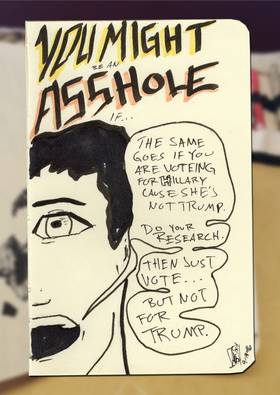 YOU MIGHT
BE AN
ASSHOLE
IF...
THE SAME
GOES IF YOU
ARE VOTEING
FOR HILLARY
CAUSE SHE'S
NOT TRUMP.
DO YOUR
RESEARCH.
THEN JUST
VOTE...
BUT NOT
FOR
TRUMP.